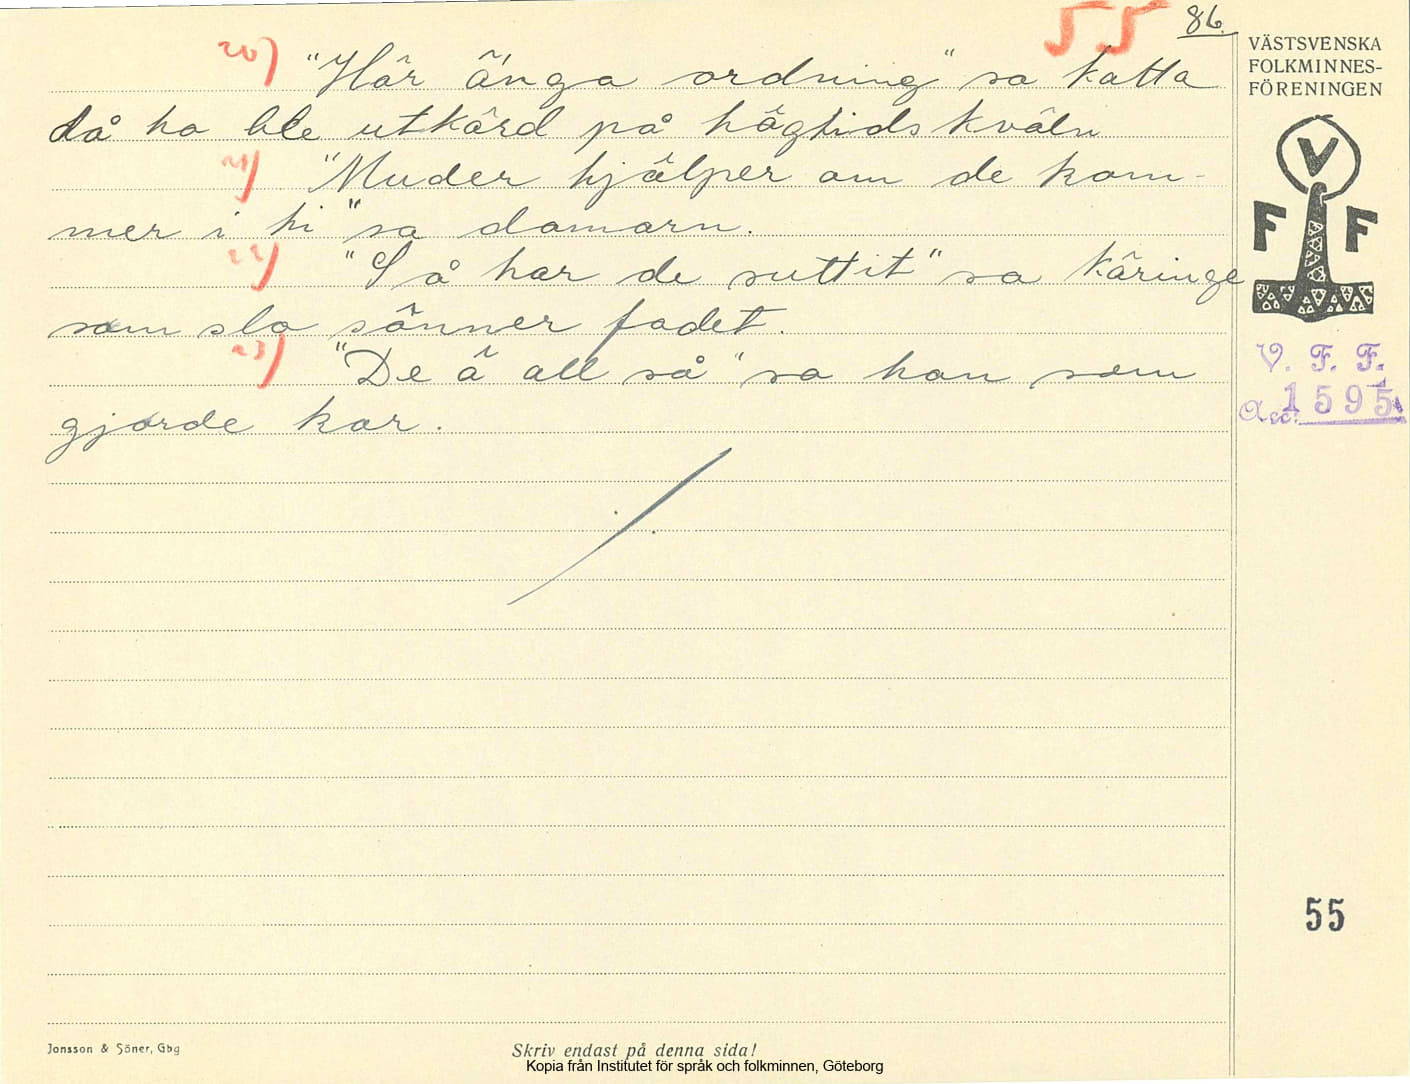 55 86.
20) "Här änga ordning" sa katta
då ho ble utkärd på hägtidskväln
21) "Muder hjälper om de kom-
mer i hi" sa damarn.
22) "Så har de suttit" sa käringe
som sla sönner fadet.
23) "De ä all så" sa han som
gjorde kar.
VÄSTSVENSKA
FOLKMINNES-
FÖRENINGEN
V
F F
V. F. F.
Acc: 1595
55
Jonsson & Söner, Gbg
Skriv endast på denna sida!
Kopia från Institutet för språk och folkminnen, Göteborg